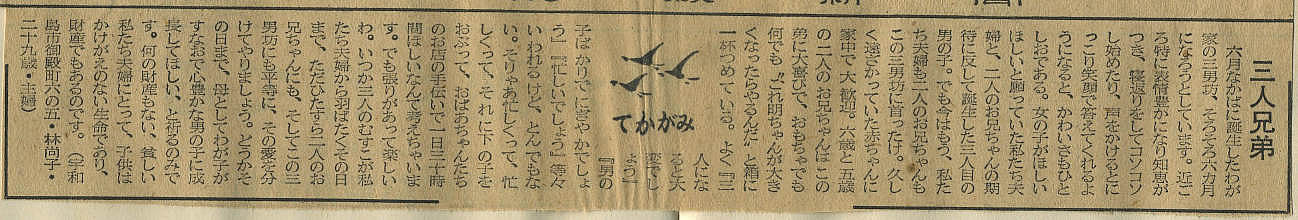 三人兄弟
六月なかばに誕生したわが
家の三男坊、そろそろ六カ月
になろうとしています。近ご
ろ特に表情豊かになり知恵が
つき、寝返りをしてコソコソ
し始めたり、声をかけるとに
っこり笑顔で答えてくれるよ
うになると、かわいさもひと
しおである。女の子がほしい
ほしいと願っていた私たち夫
婦と、二人のお兄ちゃんの期
待に反して誕生した三人目の
男の子。でも今はもう、私た
ち夫婦も二人のお兄ちゃんも
この三男坊に首ったけ。久し
く遠ざかっていた赤ちゃんに
家中で大歓迎。六歳と五歳
の二人のお兄ちゃんはこの
弟に大喜びで、おもちゃでも
何でも〝これ明ちゃんが大き
くなったらやるんだ〟と箱に
一杯つめている。よく『三
人にな
ると大
変でし
ょう』
『男の
てかがみ
子ばかりでにぎやかでしょ
う』『忙しいでしょう』等々
いわれるけど、とんでもな
い。そりゃあ忙しくって、忙
しくって、それに下の子を
おぶって、おばあちゃんたち
のお店の手伝いで一日三十時
間ほしいなんて考えちゃいま
す。でも張りがあって楽しい
わ。いつか三人のむすこが私
たち夫婦から羽ばたくその日
まで、ただひたすら二人のお
兄ちゃんにも、そしてこの三
男坊にも平等に、その愛を分
けてやりましょう。どうかそ
の日まで、母としてわが子が
すなおで心豊かな男の子に成
長してほしい、と祈るのみで
す。何の財産もない、貧しい
私たち夫婦にとって、子供は
かけがえのない生命であり、
財産でもあるのです。（宇和
島市御殿町六の五・林尚子・
二十九歳・主婦）